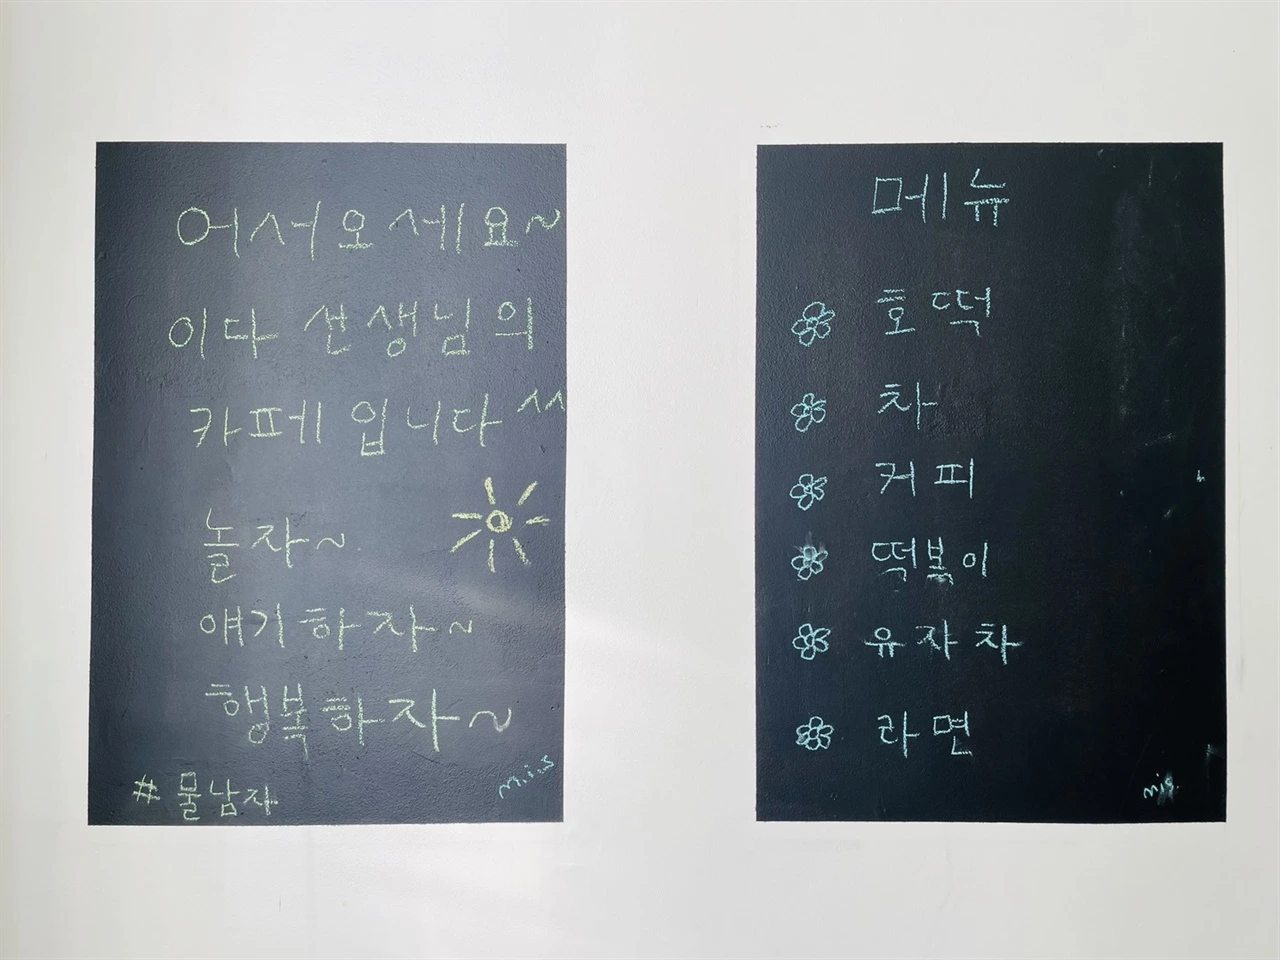 어서오세요~
이다 선생님의
카페입니다 ^^
놀자~
얘기하자~
행복하자~
# 물남자
m.i.s
메뉴
호떡
차
커피
떡볶이
유자차
라면
mis.